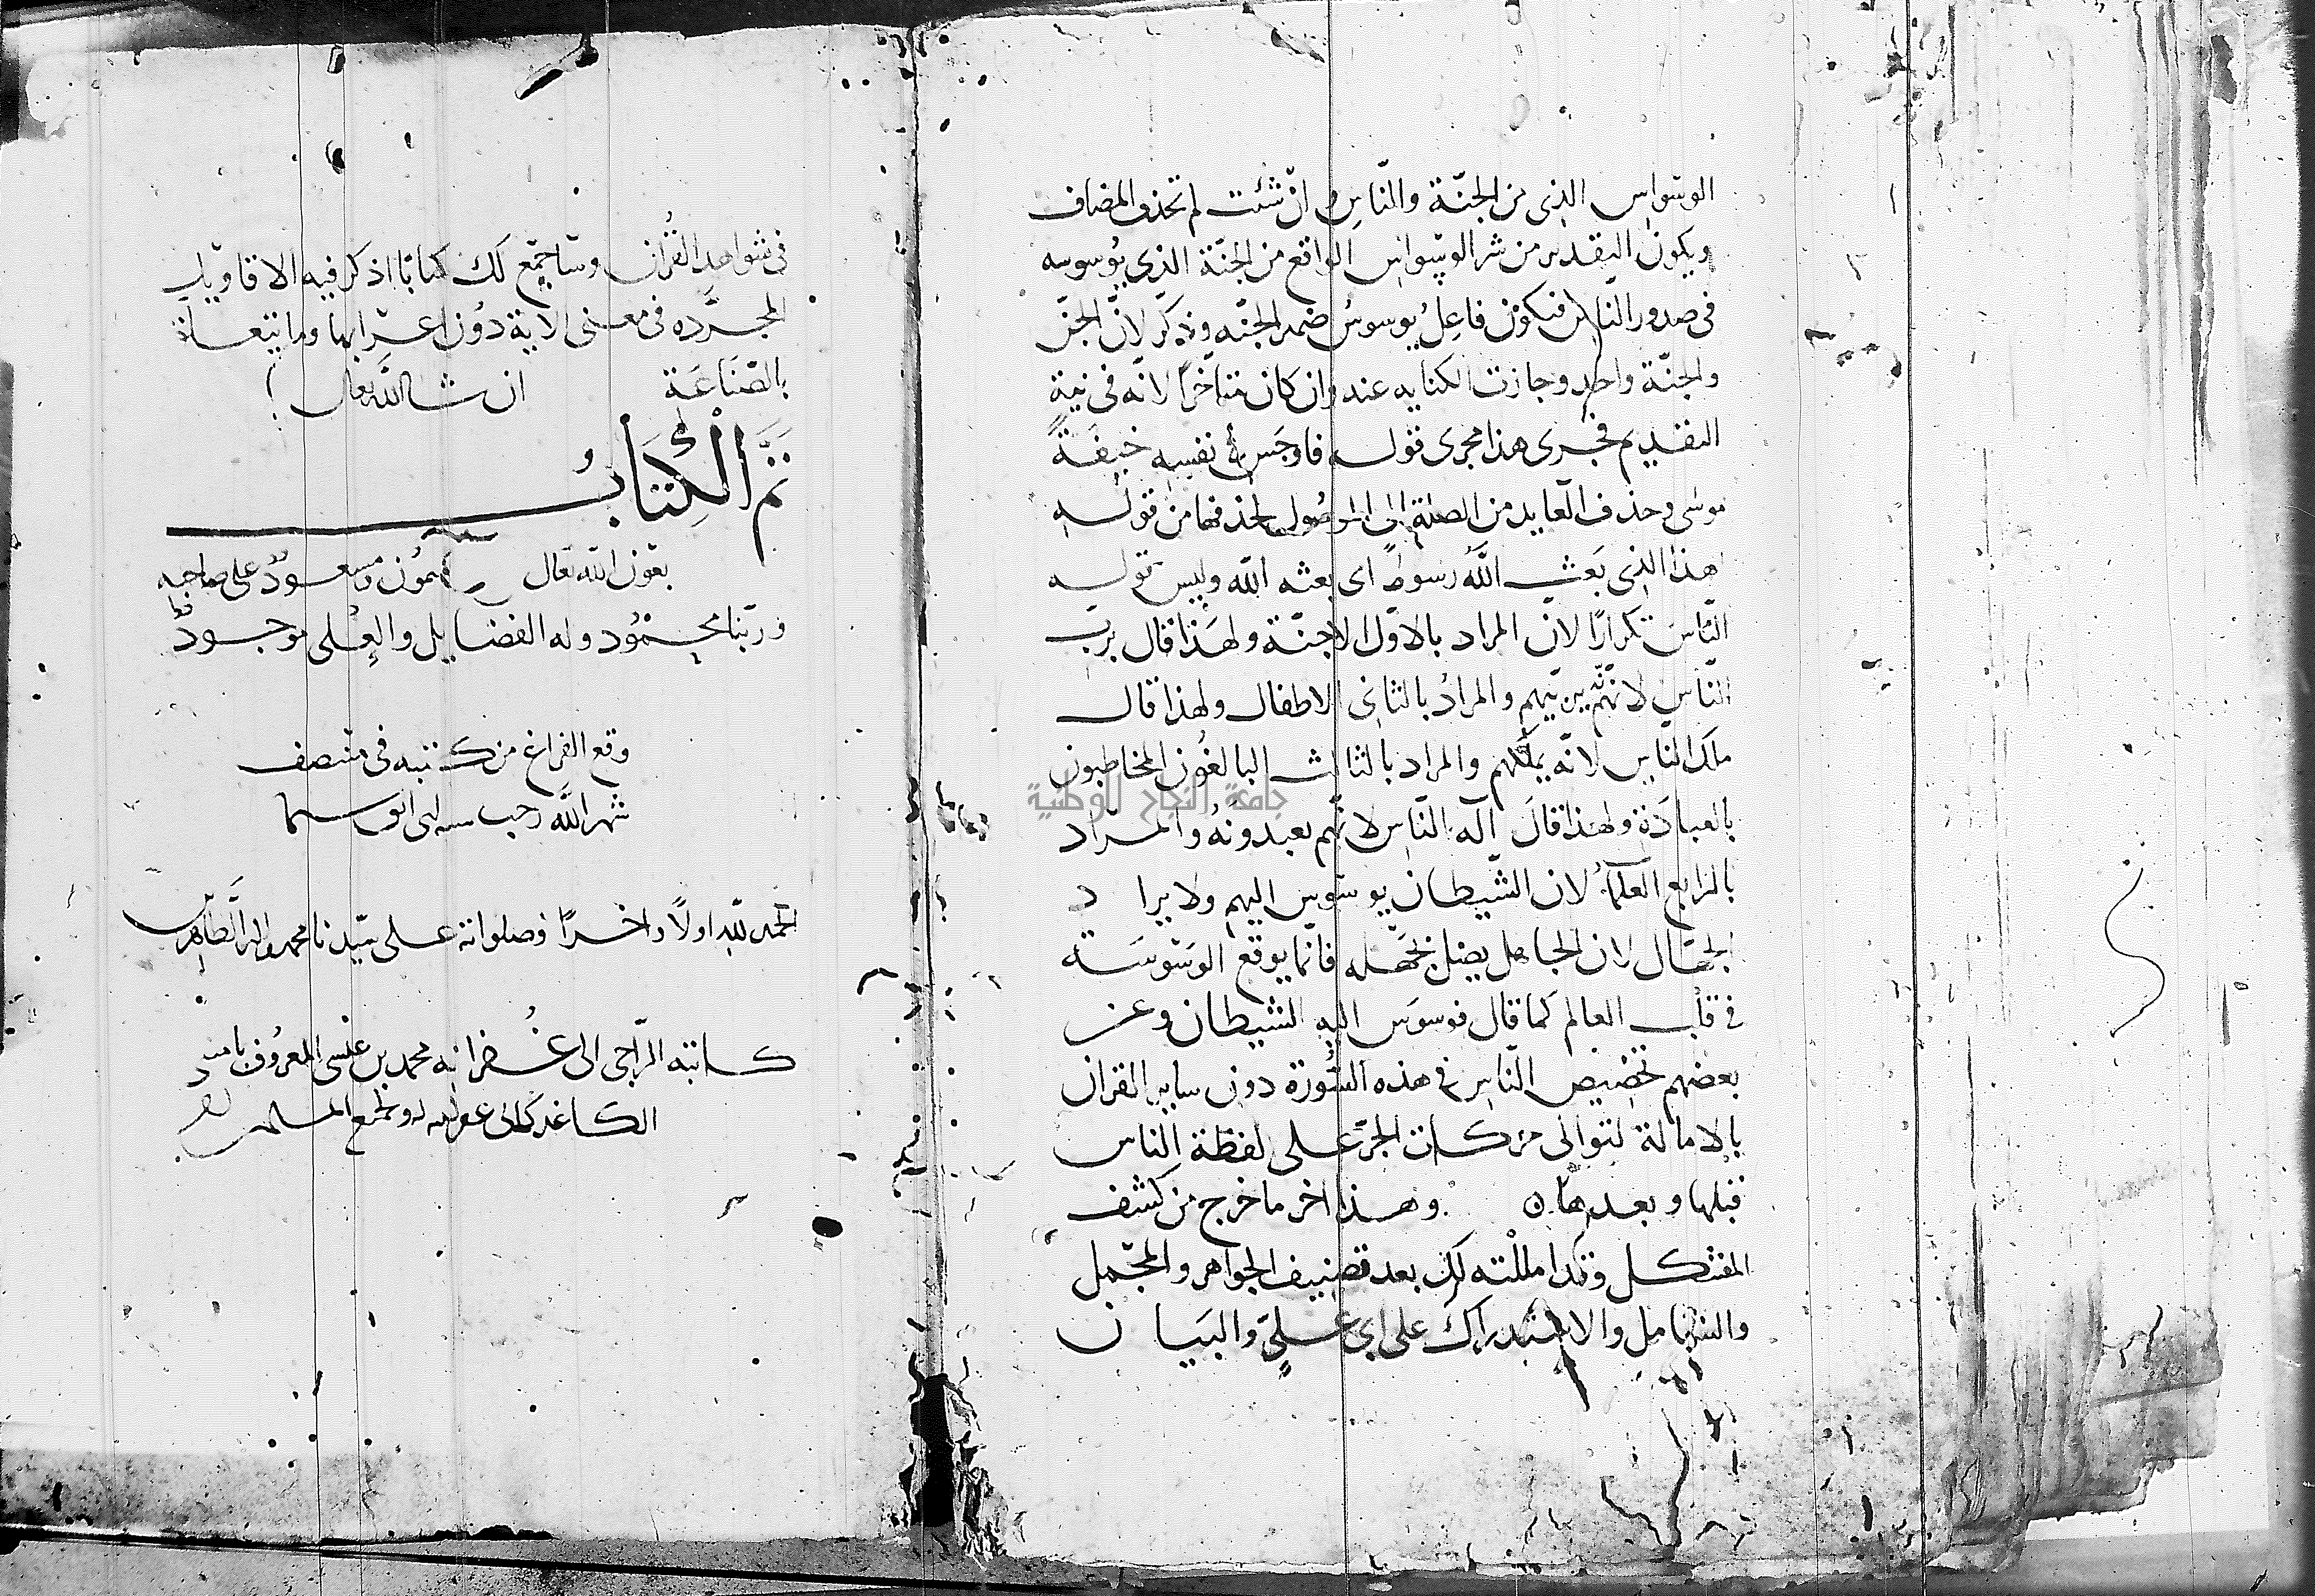 الوسواس الذى من الجنّة والنّاس وانّ شئت لم تحذف المضاف
ويكون التقدير من شر الوسواس الواقع من الجنّة الذى يوسوسه
فى صدور النّاس فيكون فاعلُ يوسوسُ ضمير الجنّه وذكّر لانّ الجنّ
والجنّة واحد وجازت الكنايه عنه وان كان متاخّراً لانّه فى نية
التقديم فجرى هذا مجرى قوله فاوجَس فى نفسه خيفةً
موسى وحذف العايد من الصلة الى الموصُول لحذفها من قوله
اهذا الذى بَعَث اللَّه رسولا اى بعثه الله وليس قوله
النّاس تكرارًا لانّ المراد بالاوّل الاجنّة ولهَذا قال بربّ
النّاس لانّه يربّيهم والمرادُ بالثانى الاطفال ولهذا قال
ملك النّاس لانّه يملّكهم والمراد بالثالث البالغُون المخاطبون
جامعة النجاح الوطنية
بالعبادَة ولهذا قالَ آله النّاس لانّهم يعبدونهُ والمراد
بالرابع العلمآءُ لان الشّيطان يوسوس اليهم ولا يراد
الجهّال لان الجاهل يضل بجَهله فانّما يوقع الوَسْوسَة
فى قلب العالم كما قال فوسوَس اليه الشيطان وعن
بعضهم تخصيص النّاس فى هذه السُّورة دون ساير القران
بالامالة لتوالى حركات الجرّ على لفظة الناس
قبلها وبعدها ه وهذا اخر ما خرج من كشف
المشكل وقد امللْته لك بعد تصنيف الجواهر والمجمل
والشامل والاستدراك على ابى علىّ والبيان
فى شواهد القُران وسَاجمع لك كتابًا اذكر فيه الاقاويل
المجرَّده فى معنى الاية دُون اعرابها وما يتعلق
بالصّنَاعَة ان شا اللَّه تعالى
تَمَّ الْكِتَابُ
بعَون الله تعَال ميمُون ومسعُودٌ على صاحبه
وربّنا محمُود وله الفضايل والعُلى موجودٌ
وقع الفراغ من كتبه فى منتصف
شهر اللَّه رجب
الحمد للّه اولًا واخرًا وصلواته على سيّدنا محمد واله الطَّاهرين
كاتبه الرّاجى الى غُفرانه محمد بن عيسى المعروف
الكاغدكانى غفر الله له ولجميع المسلمين